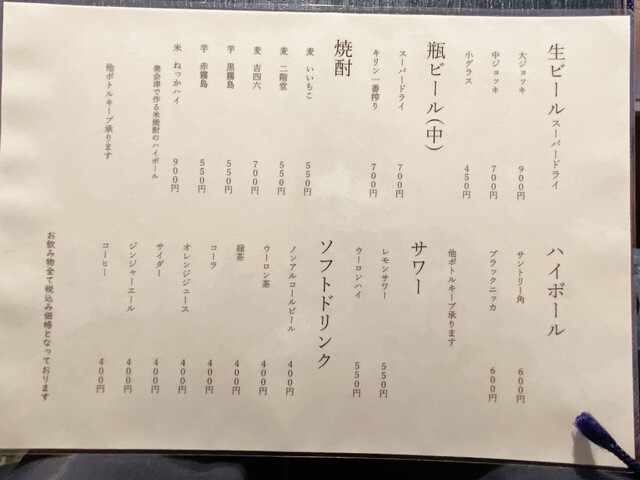 生ビール スーパードライ
大ジョッキ 900円
中ジョッキ 700円
小グラス 450円
瓶ビール(中)
スーパードライ 700円
キリン一番搾り 700円
焼酎
麦 いいちこ 550円
麦 二階堂 550円
麦 吉四六 700円
芋 黒霧島 550円
芋 赤霧島 550円
米 ねっかハイ 900円
奥会津で作る米焼酎のハイボール
他ボトルキープ承ります
ハイボール
サントリー角 600円
ブラックニッカ 600円
他ボトルキープ承ります
サワー
レモンサワー 550円
ウーロンハイ 550円
ソフトドリンク
ノンアルコールビール 400円
ウーロン茶 400円
緑茶 400円
コーラ 400円
オレンジジュース 400円
サイダー 400円
ジンジャーエール 400円
コーヒー 400円
お飲み物全て税込み価格となっております